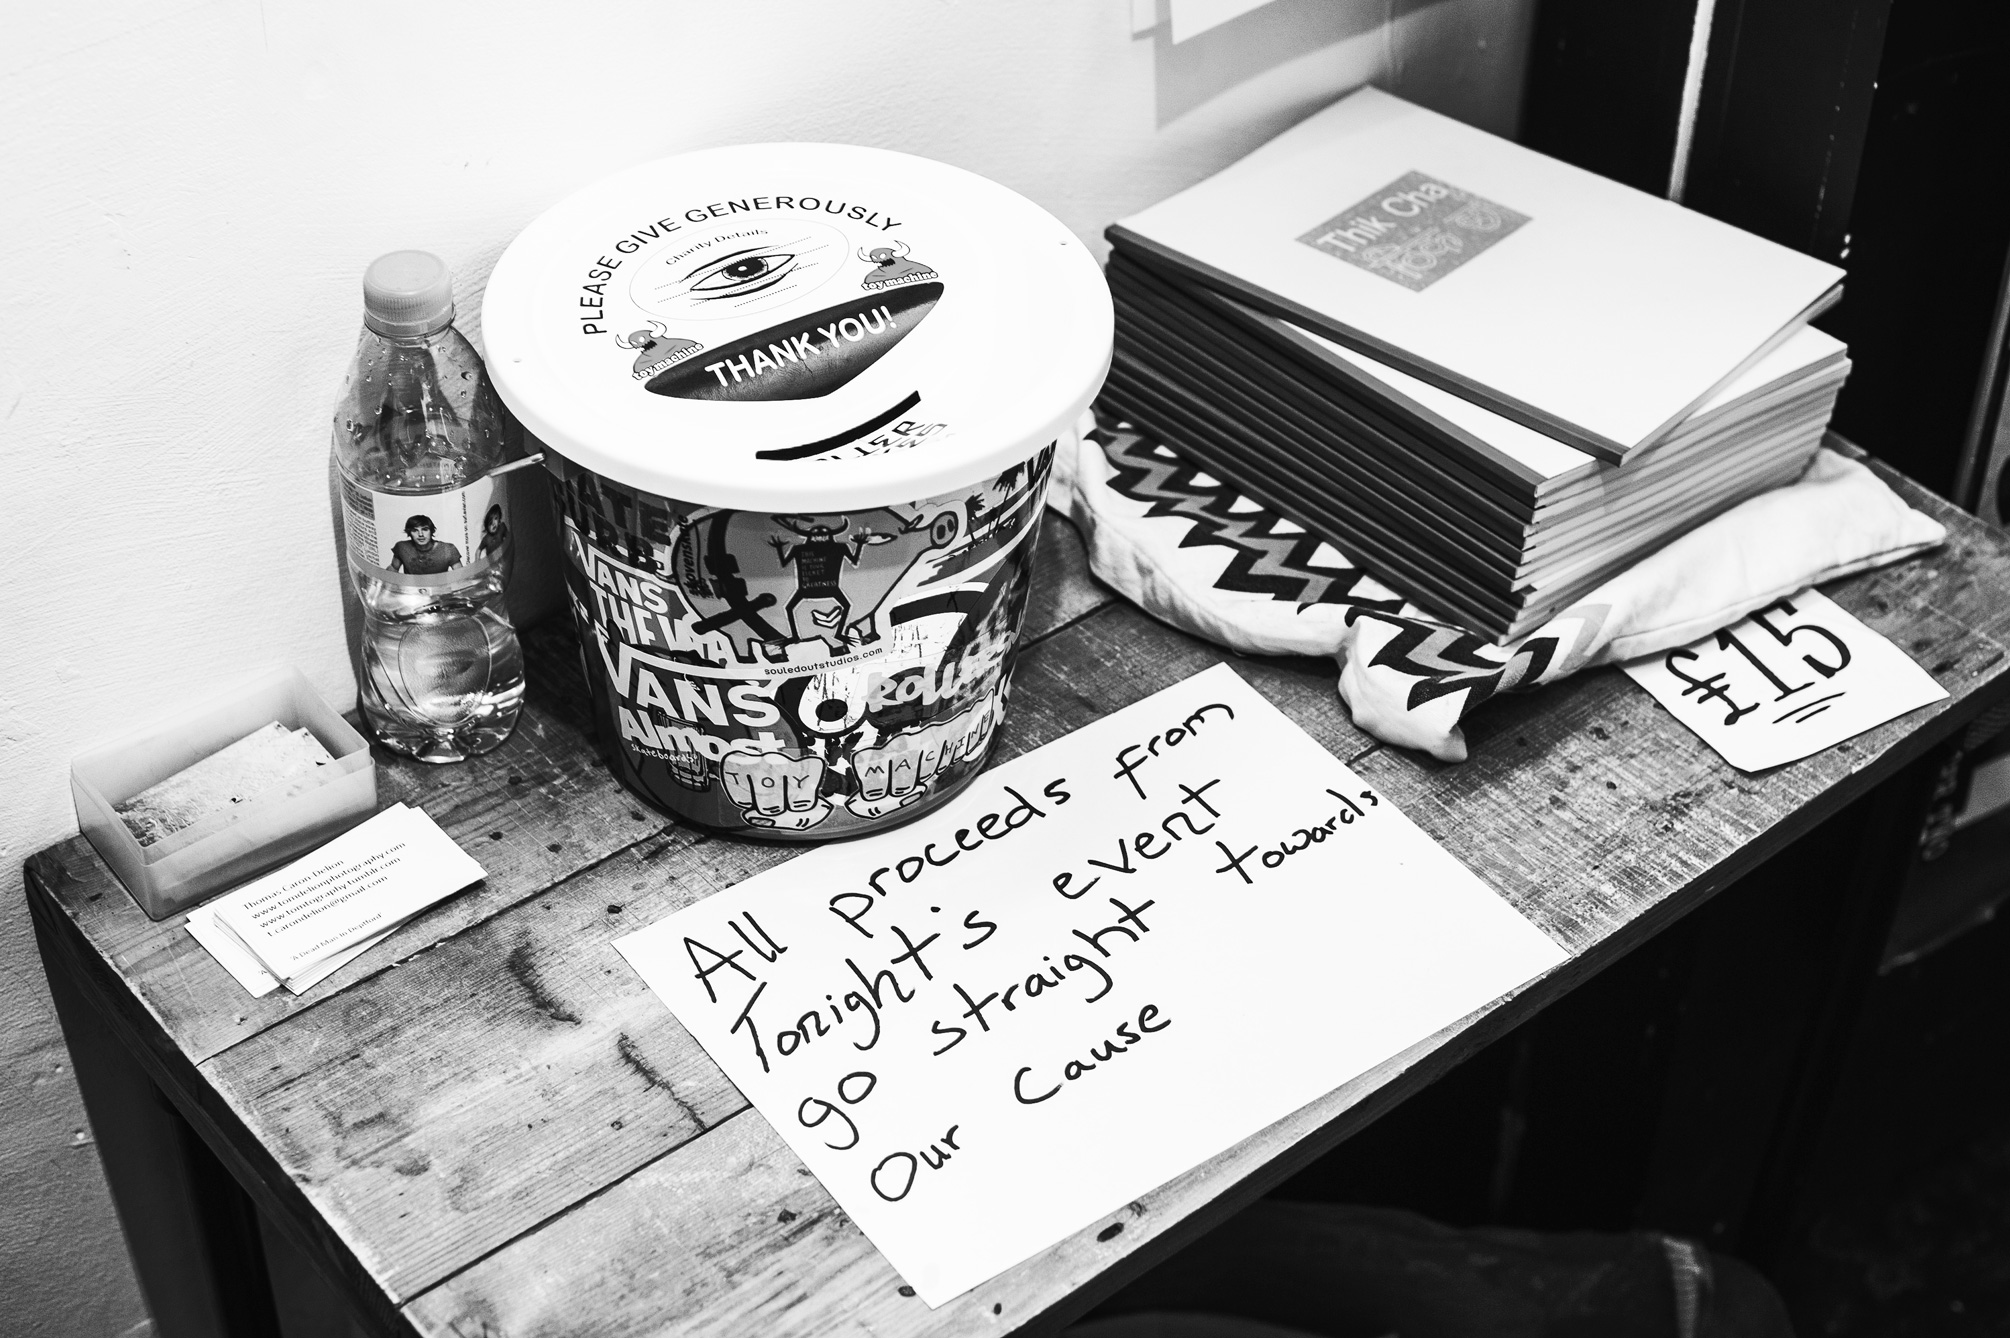 PLEASE GIVE GENEROUSLY
Charity Details
toymachine
toymachine
THANK YOU!
Thik Cha
£15
VANS
THE WALL
souledoutstudios.com
VANS
Almost
skateboards
TOY MACHINE
Thomas Caron Delion
www.tomdelionphotography.com
www.tomtography.tumblr.com
t.carondelion@gmail.com
'A Dead Man In Deptford'
All proceeds from
Tonight's event
go straight towards
Our Cause